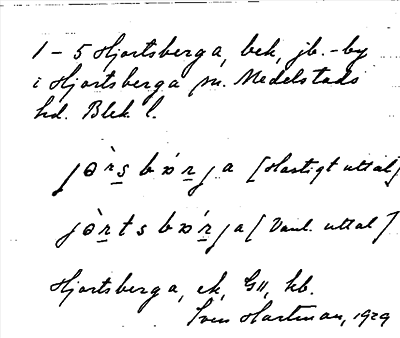 1-5 Hjortsberga, bek, jb.-by
i Hjortsberga sn. Medelstads
hd. Blek. l.
jɵ̀rsbɷ́rja [Hastigt uttal]
jɵ̀rtsbɷ́rja [Vanl. uttal]
Hjortsberga, ek, Gll, kb.
Sven Hartman, 1929